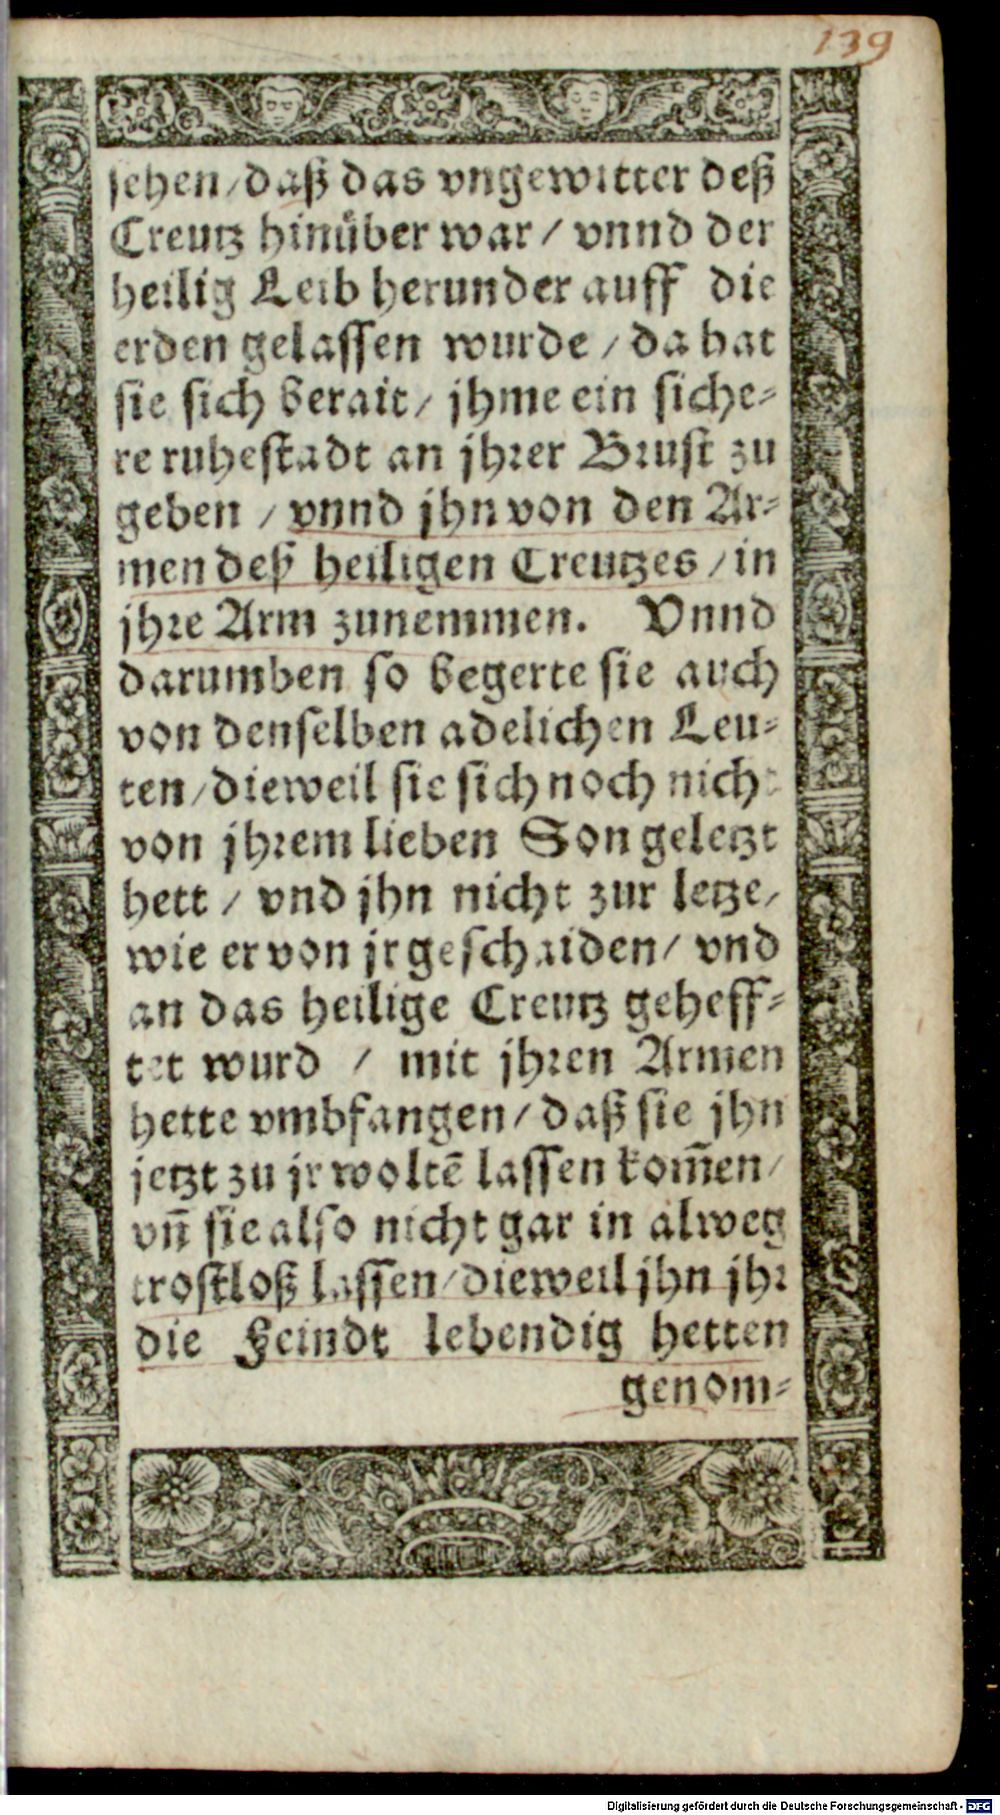 139
sehen / daß das vngewitter deß
Creutz hinüber war / vnnd der
heilig Leib herunder auff die
erden gelassen wurde / da hat
sie sich berait / jhme ein siche⸗
re ruhestadt an jhrer Brust zu
geben / vnnd jhn von den Ar⸗
men deß heiligen Creutzes / in
jhre Arm zunemmen. Vnnd
darumben so begerte sie auch
von denselben adelichen Leu⸗
ten / dieweil sie sich noch nicht
von jhrem lieben Son geletzt
hett / vnd jhn nicht zur letze /
wie er von jr geschaiden / vnd
an das heilige Creutz geheff⸗
tet wurd / mit jhren Armen
hette vmbfangen / daß sie jhn
jetzt zu jr woltē lassen kom̄en /
vn̄ sie also nicht gar in alweg
trostloß lassen / dieweil jhn jhr
die Feindt lebendig hetten
genom⸗
Digitalisierung gefördert durch die Deutsche Forschungsgemeinschaft - DFG